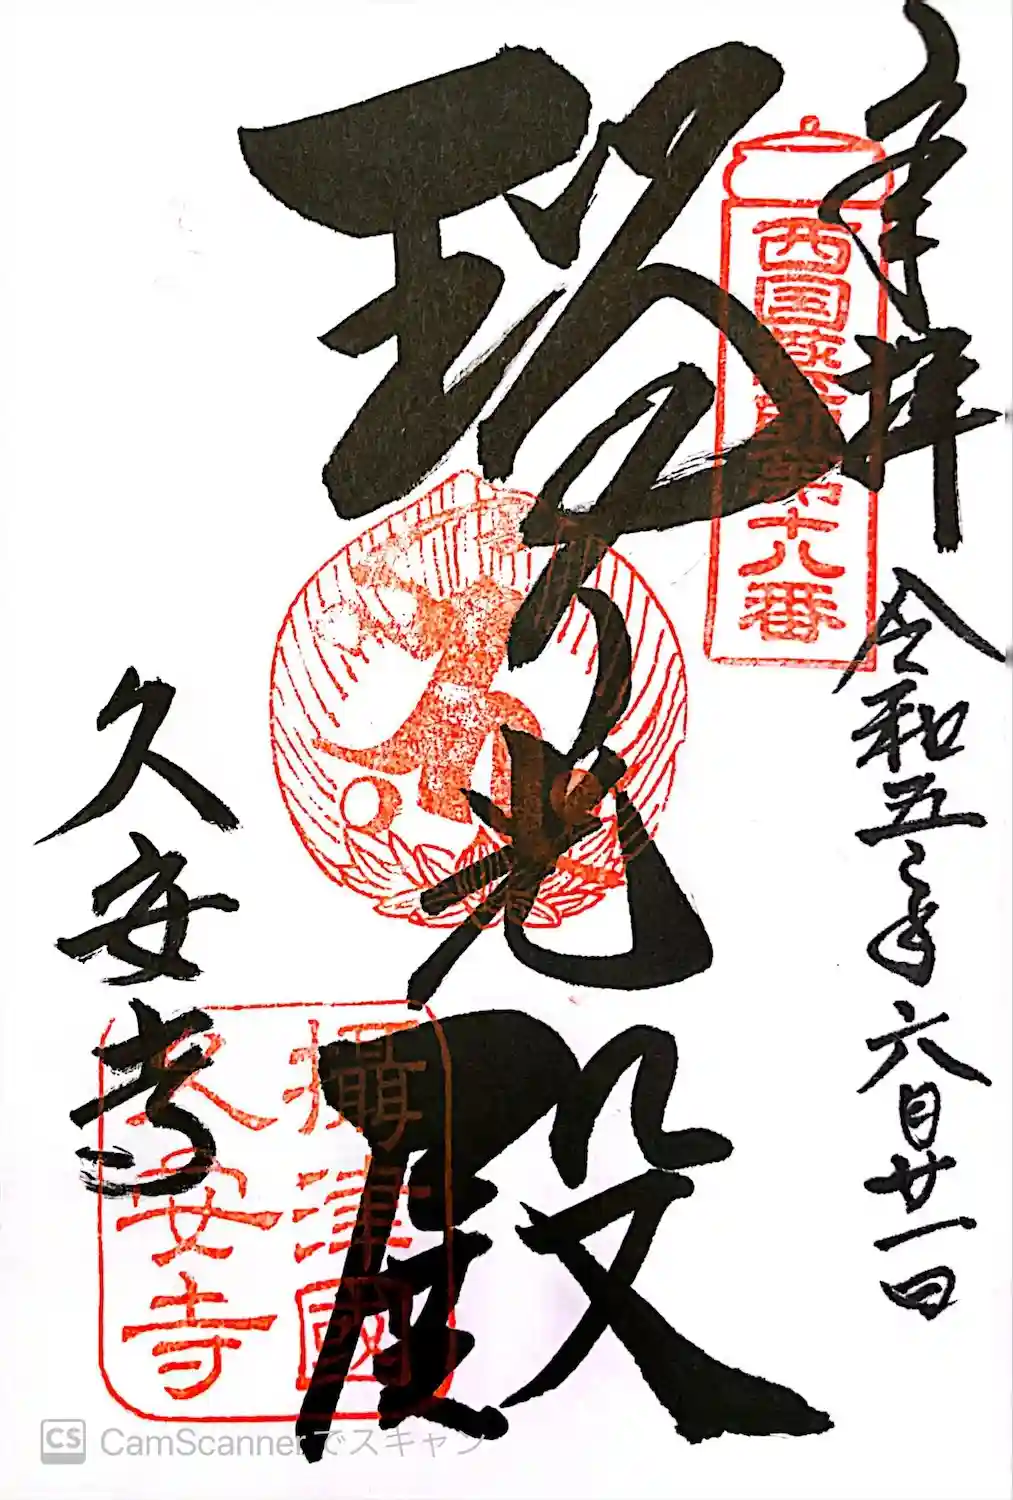 奉拝
令和五年六月廿一日
西国薬師第十八番
瑠り光殿
久安寺
攝津國
久安寺
CS CamScannerでスキャン